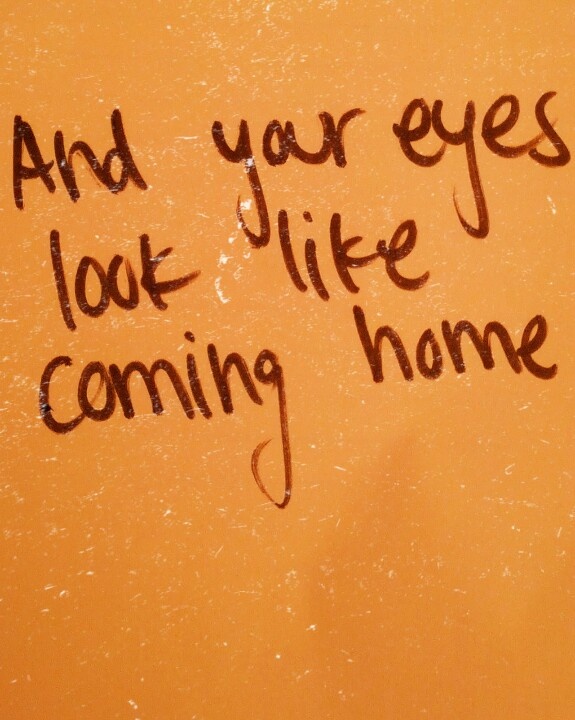 And your eyes
look like
coming home